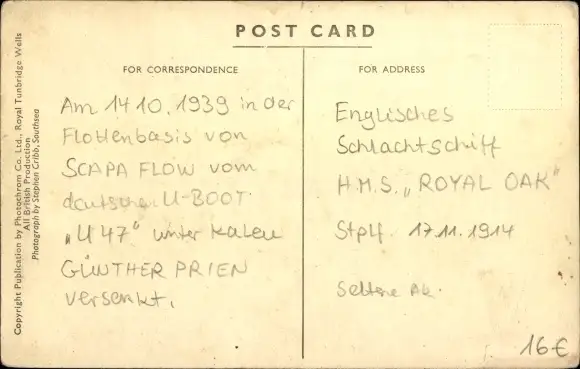 POST CARD
FOR CORRESPONDENCE
FOR ADDRESS
Copyright Publication by Photochrom Co. Ltd., Royal Tunbridge Wells
All British Production
Photograph by Stephen Cribb, Southsea
Am 14 10. 1939 in der
Flottenbasis von
SCAPA FLOW vom
deutschen U-BOOT
"U 47" unter Kaleu
GÜNTHER PRIEN
versenkt.
Englisches
Schlachtschiff
H.M.S. „ROYAL OAK"
Stplf. 17.11.1914
Seltene Ak.
16€